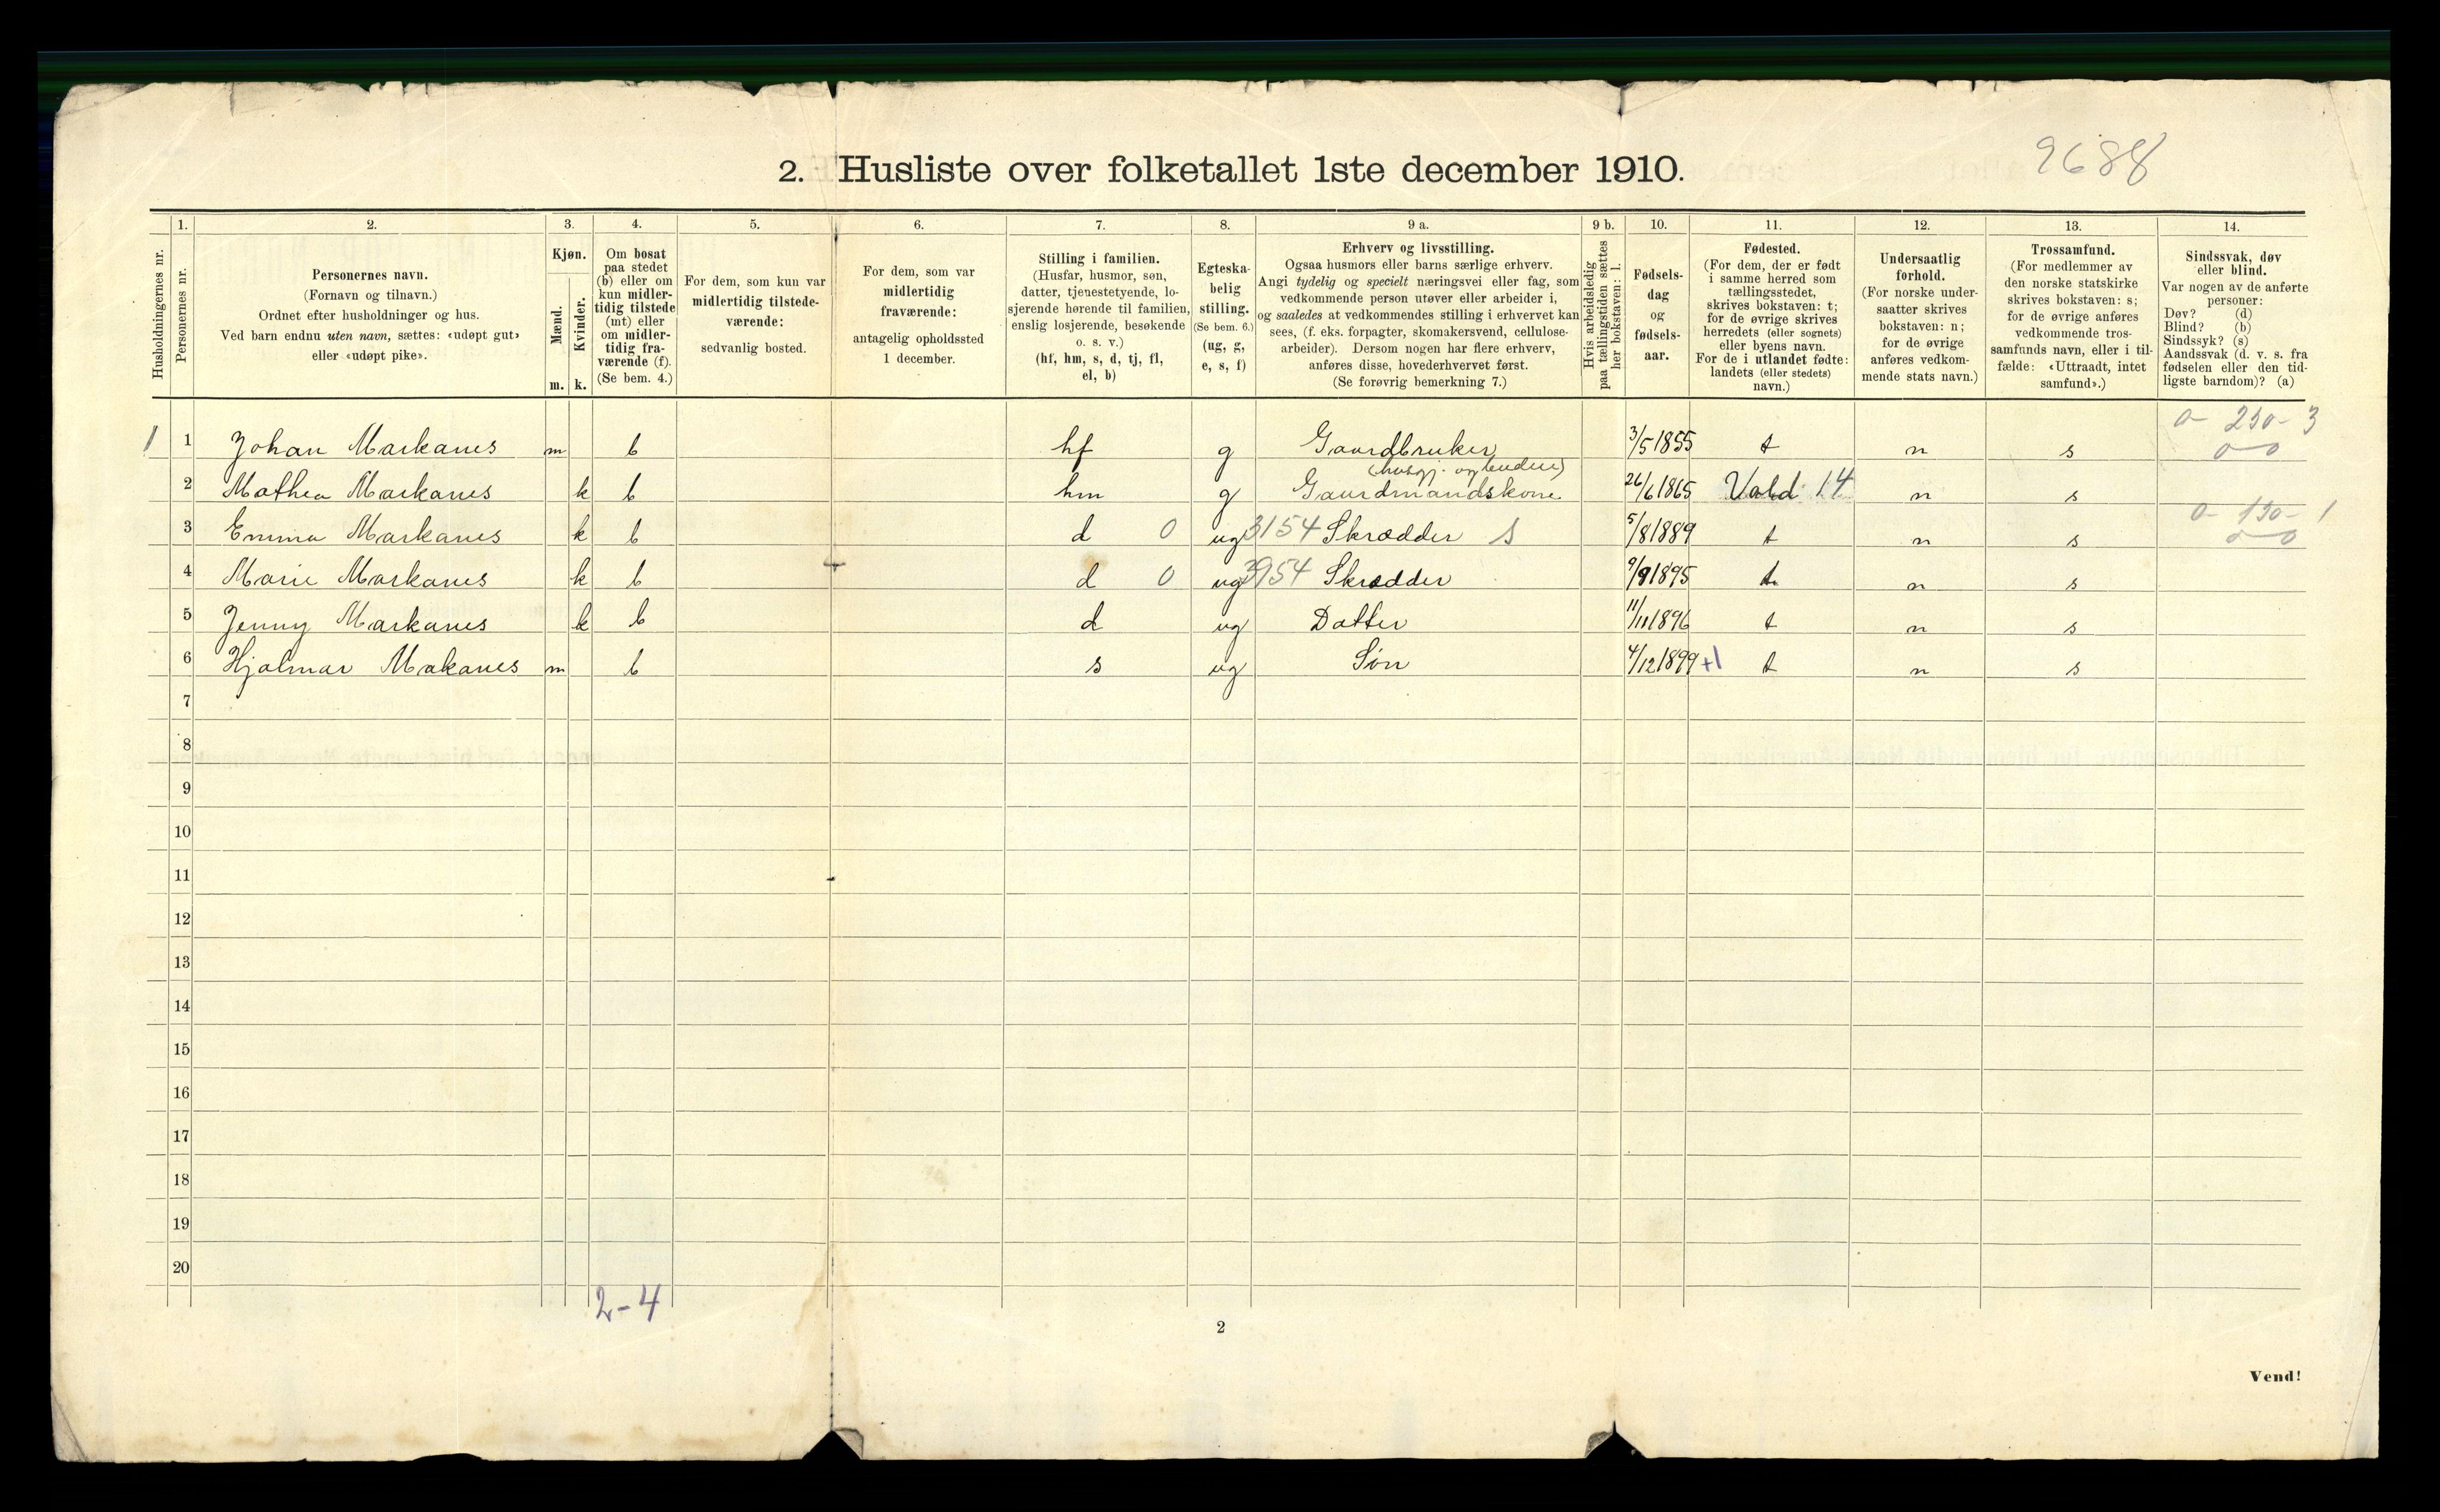 9688
2. Husliste over folketallet 1ste december 1910.
1. 2. 3. 4. 5. 6. 7. 8. 9 a. 9 b. 10. 11. 12. 13. 14.
Husholdningernes nr.
Personernes nr.
Personernes navn.
(Fornavn og tilnavn.)
Ordnet efter husholdninger og hus.
Ved barn endnu uten navn, sættes: «udøpt gut»
eller «udøpt pike».
Kjøn.
Mænd.
Kvinder.
m. k.
Om bosat
paa stedet
(b) eller om
kun midler-
tidig tilstede
(mt) eller
om midler-
tidig fra-
værende (f).
(Se bem. 4.)
For dem, som kun var
midlertidig tilstede-
værende:
sedvanlig bosted.
For dem, som var
midlertidig
fraværende:
antagelig opholdssted
1 december.
Stilling i familien.
(Husfar, husmor, søn,
datter, tjenestetyende, lo-
sjerende hørende til familien,
enslig losjerende, besøkende
o. s. v.)
(hf, hm, s, d, tj, fl,
el, b)
Egteska-
belig
stilling.
(Se bem. 6.)
(ug, g,
e, s, f)
Erhverv og livsstilling.
Ogsaa husmors eller barns særlige erhverv.
Angi tydelig og specielt næringsvei eller fag, som
vedkommende person utøver eller arbeider i,
og saaledes at vedkommendes stilling i erhvervet kan
sees, (f. eks. forpagter, skomakersvend, cellulose-
arbeider). Dersom nogen har flere erhverv,
anføres disse, hovederhvervet først.
(Se forøvrig bemerkning 7.)
Hvis arbeidsledig
paa tællingstiden sættes
her bokstaven: l.
Fødsels-
dag
og
fødsels-
aar.
Fødested.
(For dem, der er født
i samme herred som
tællingsstedet,
skrives bokstaven: t;
for de øvrige skrives
herredets (eller sognets)
eller byens navn.
For de i utlandet fødte:
landets (eller stedets)
navn.)
Undersaatlig
forhold.
(For norske under-
saatter skrives
bokstaven: n;
for de øvrige
anføres vedkom-
mende stats navn.)
Trossamfund.
(For medlemmer av
den norske statskirke
skrives bokstaven: s;
for de øvrige anføres
vedkommende tros-
samfunds navn, eller i til-
fælde: «Uttraadt, intet
samfund».)
Sindssvak, døv
eller blind.
Var nogen av de anførte
personer:
Døv? (d)
Blind? (b)
Sindssyk? (s)
Aandssvak (d. v. s. fra
fødselen eller den tid-
ligste barndom)? (a)
0- 230- 3
1 1 Johan Markanes m b hf g Gaardbruker 3/5 1855 t n s 0-0
(husgj. og
2 Mathea Markanes k b hm g Gaardmandskone 26/6 1865 14 n s
0- 130- 1
3 Emma Markanes k b d 0 ug 3154 Skrædder S 5/8 1889 t n s 0-0
4 Marie Markanes k b d 0 ug 3954 Skrædder 9/9 1895 t n s
5 Jenny Markanes k b d ug Datter 11/11 1896 t n s
6 Hjalmar Makanes m b s ug Søn 4/12 1899 +1 t n s
7
8
9
10
11
12
13
14
15
16
17
18
19
20
2-4
2
Vend!